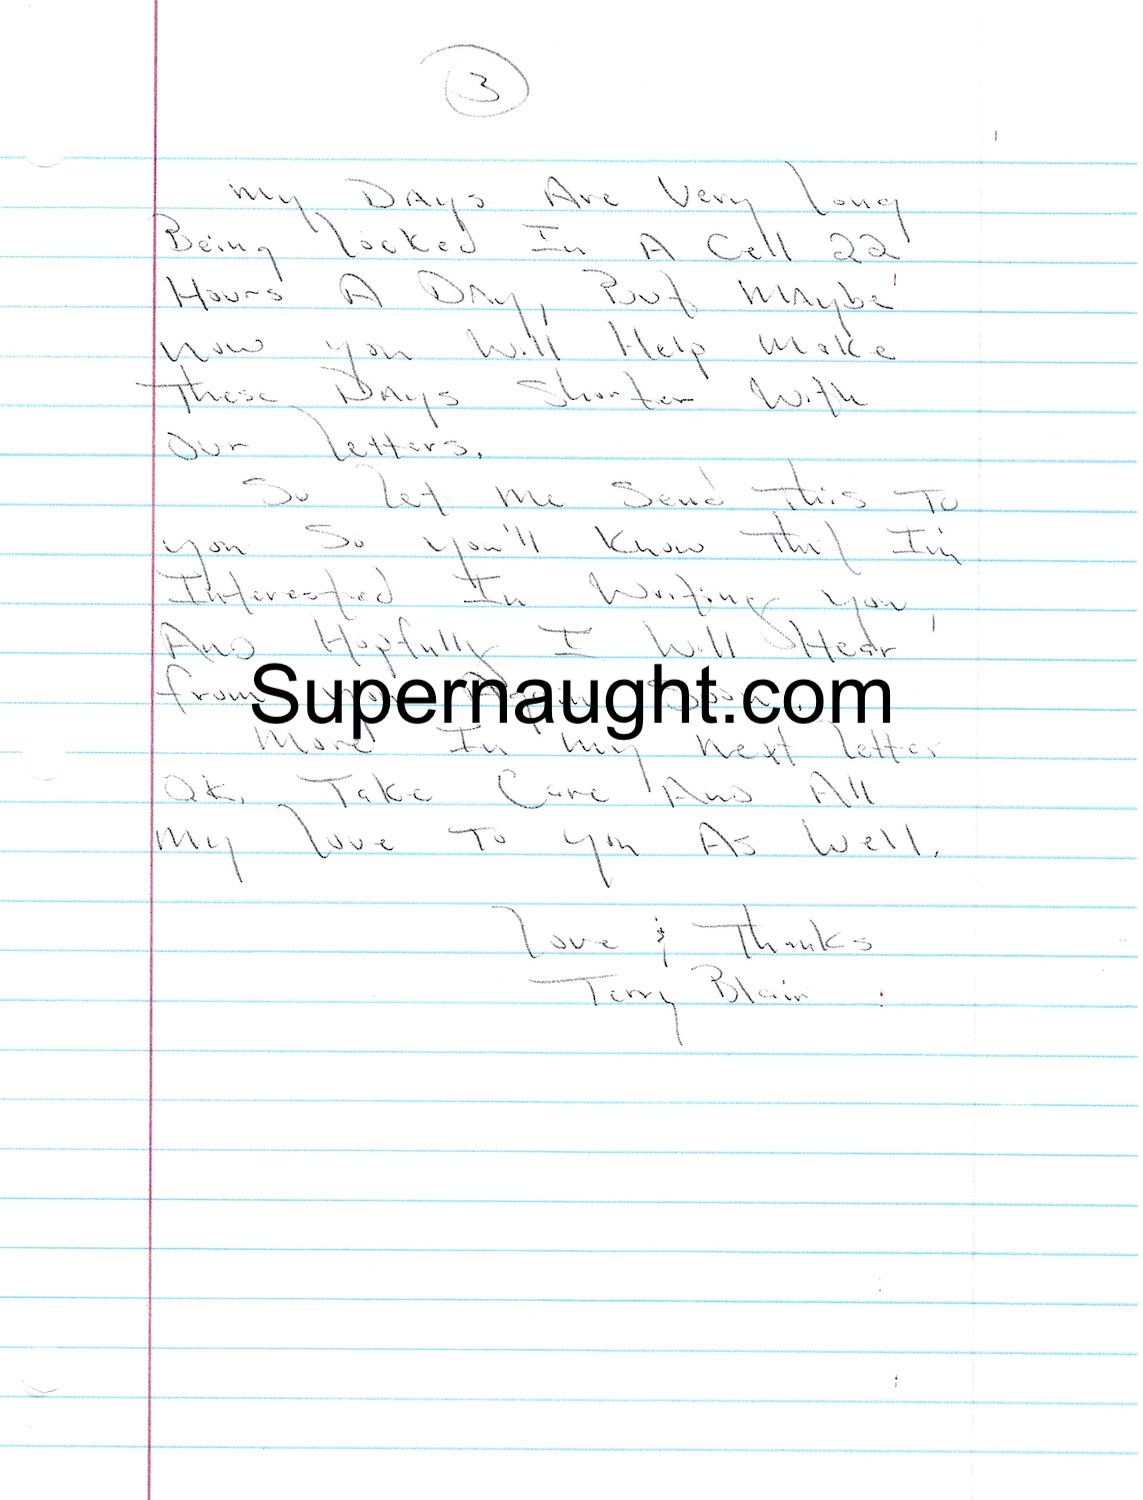 3
My Days Are Very long
Being locked In A Cell 22
Hours A Day, But Maybe
now you Will Help Make
These Days Shorter With
Our letters.
So let me Send This To
you So you'll Know That I'm
Interested In Writing you,
And Hopfully I Will Hear
from you Again Soon.
Supernaught.com
More In my next letter
Ok. Take Care And All
My love To you As Well.
Love & Thanks
Terry Blair